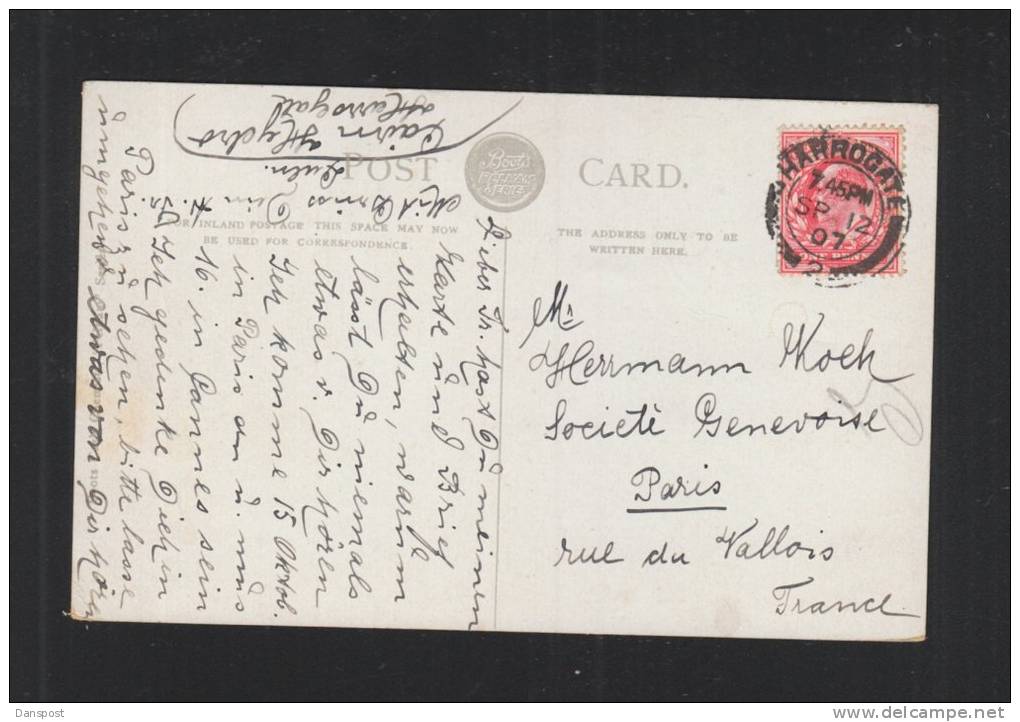 POST CARD.
Boots
FOR INLAND POSTAGE THIS SPACE MAY NOW
BE USED FOR CORRESPONDENCE.
THE ADDRESS ONLY TO BE
WRITTEN HERE.
HARROGATE
7.45PM
SP 12
07
ONE PENNY
Mr
Herrmann Koch
Societé Genevoise
Paris
rue du Vallois
France
Cairn
Hydro
Harrogate
Lieber Fr. hast Du meinen
Karte und Brief
erhalten, warum
lässt Du niemals
etwas v. Dir hören
Ich komme 15 Oktob.
in Paris an u. muss
16. in Cannes sein
Ich gedenke Dich in
Paris zu sehen, bitte lasse
umgehend etwas von Dir hören
Mit Gruss Dein
Danspost
www.delcampe.net